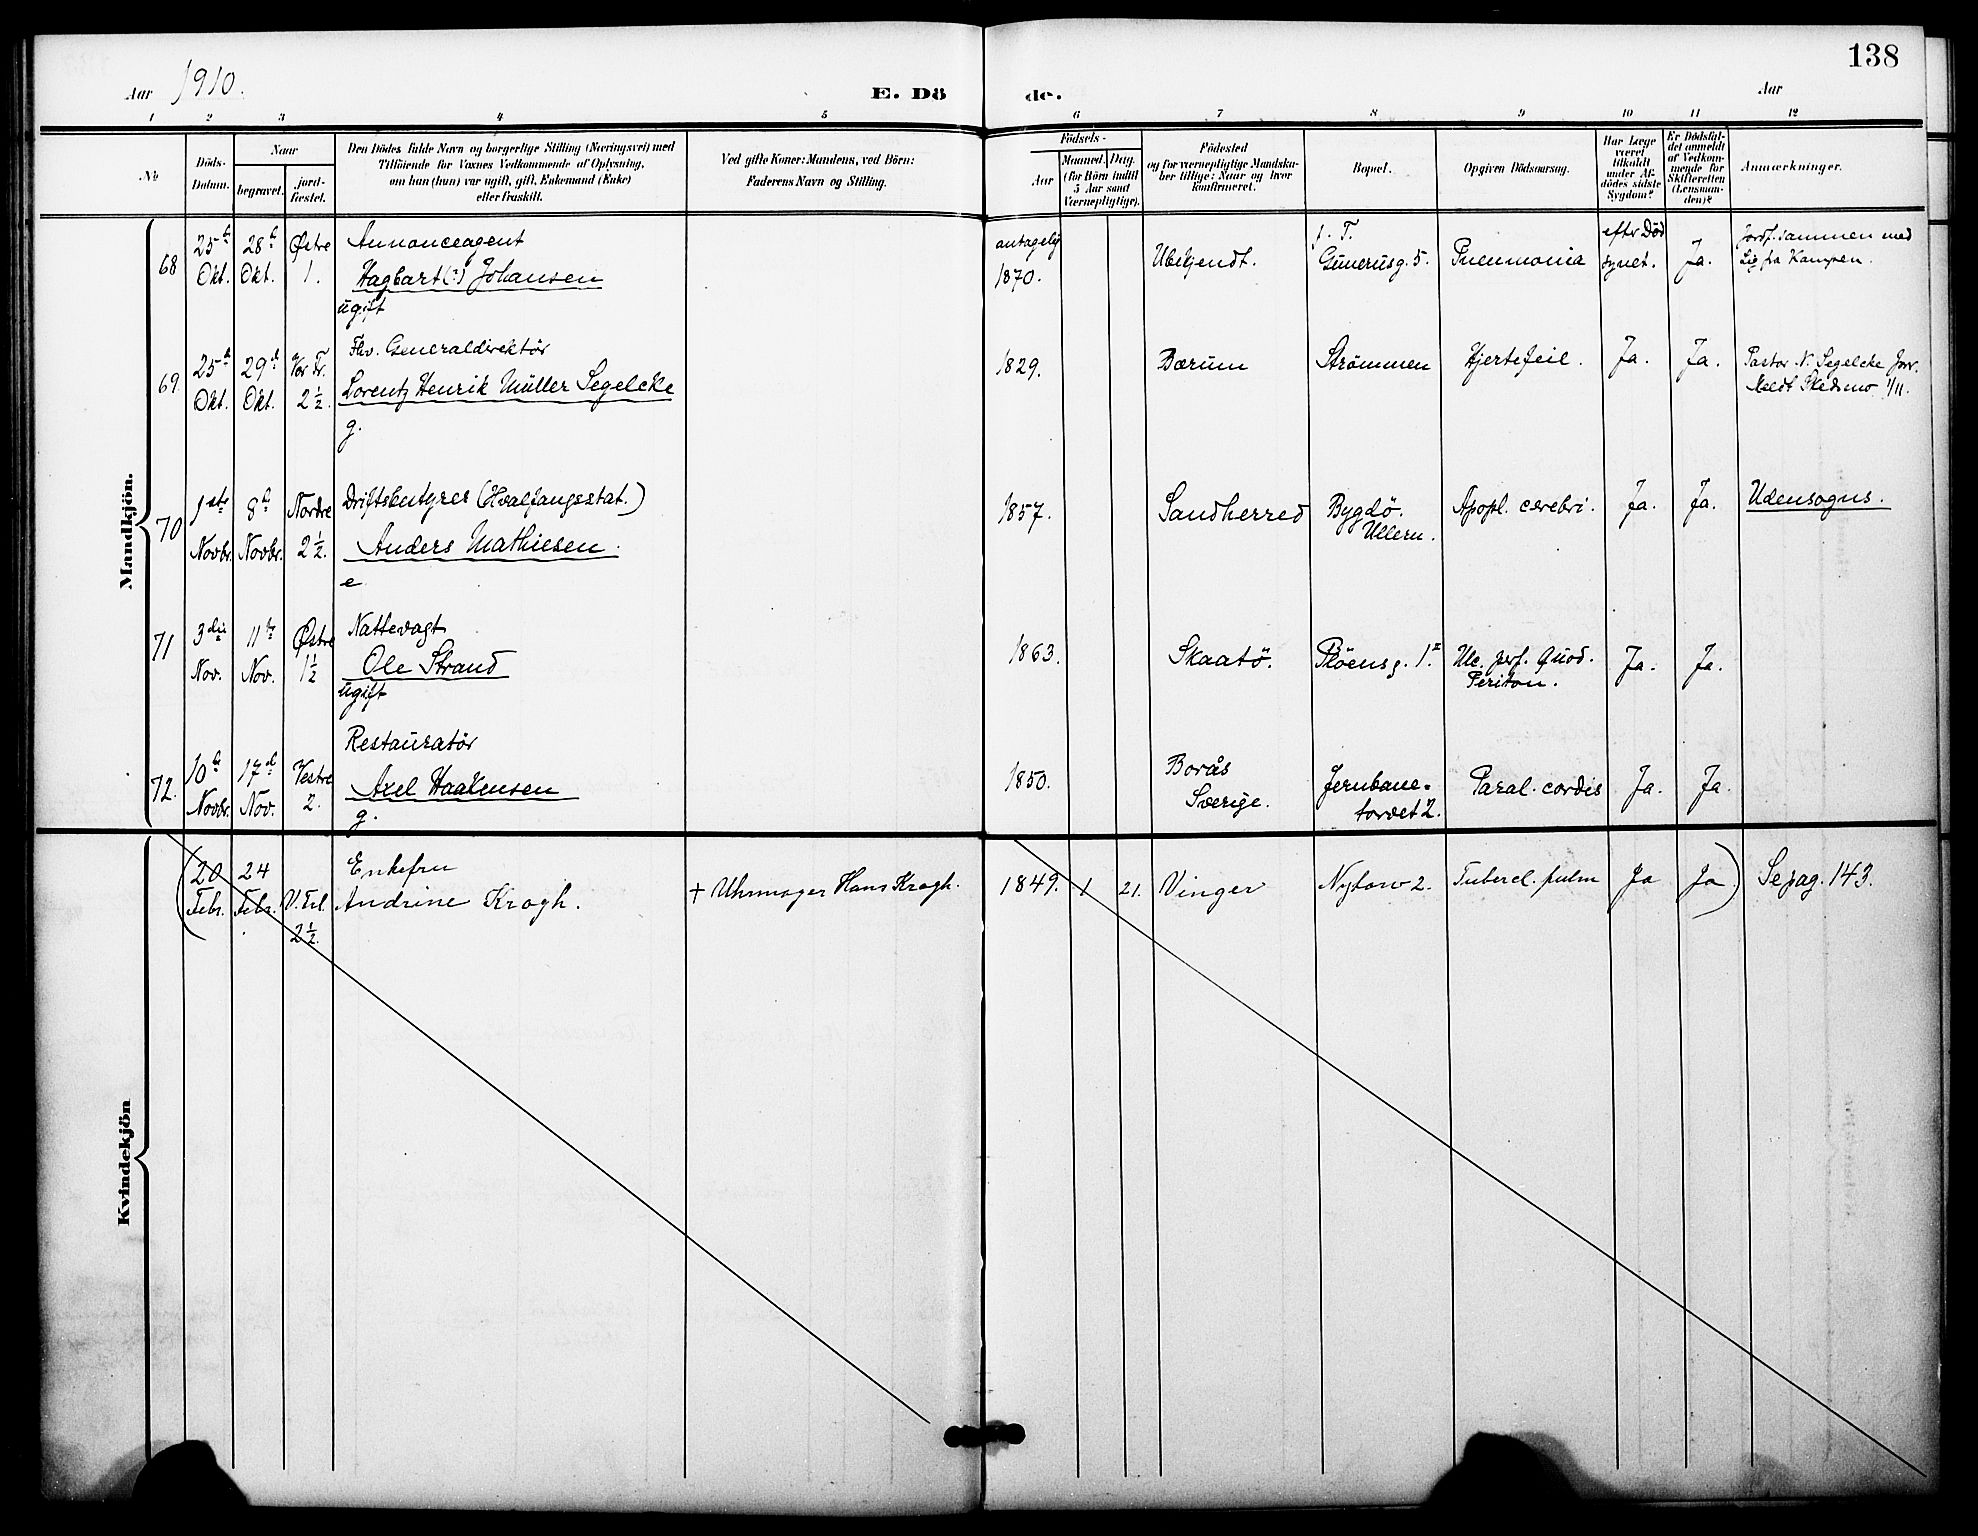 138
Aar 1910.
E. Dö
de.
Aar
1 2 3 4 5 6 7 8 9 10 11 12
No
Döds-
Datum.
Naar
begravet.
jord-
fæstet.
Den Dödes fulde Navn og borgerlige Stilling (Næringsvei) med
Tilföiende for Voxnes Vedkommende af Oplysning,
om han (hun) var ugift, gift, Enkemand (Enke)
eller fraskilt.
Ved gifte Koner: Mandens, ved Börn:
Faderens Navn og Stilling.
Födsels-
Aar
Maaned. Dag.
(for Börn indtil
5 Aar samt
Værnepligtige).
Födested
og for værnepligtige Mandskaber tillige: Naar og hvor
konfirmeret.
Bopæl.
Opgiven Dödsaarsag.
Har Læge
været
tilkaldt
under Afdödes sidste
Sygdom?
Er Dödsfaldet anmeldt
af Vedkommende for
Skifteretten
(Lensmanden)?
Anmærkninger.
Mandkjön.
68
25de
Okt.
28de
Okt.
Østre
1.
Annonceagent
Hagbart (?) Johansen
ugift
antagelig
1870.
Ubekjendt.
p. T.
Gunerusg. 5.
Pneumonia
efter Død
synet.
Ja.
Jordf. sammen med
Lig fra Kampen.
69.
25de
Okt.
29de
Okt.
Vor Fr.
2½.
Fhv. Generaldirektør
Lorentz Henrik Müller Segelcke
g.
1829.
Bærum
Strömmen
Hjertefeil.
Ja.
Ja.
Pastor N. Segelcke Forr.
Medt Skedsmo 1/11.
70
1ste
Novbr.
8de
Novbr.
Nordre
2½.
Driftsbestyrer (Hvalfangsstat.)
Anders Mathiesen.
e
1857.
Sandherred
Bygdö.
Ullern.
Apopl. cerebri.
Ja.
Ja.
Udensogns.
71
3die
Nov.
11te
Nov.
Østre
1½
Nattevagt
Ole Strand
ugift
1863.
Skaatö.
Plöensg. 1.
Ulc. perf. Quod.
Periton.
Ja.
Ja.
72.
10de
Novbr.
17de
Nov.
Vestre
2.
Restauratør
Axel Haakensen
g.
1850.
Borås
Sverige.
Jernbane-
torvet 2.
Paral. cordis
Ja.
Ja.
Kvindekjön
(20
Febr.
24
Febr.
V. Frl.
2½.
Enkefru
Andrine Krogh.
+ Uhrmager Hans Krogh.
1849. 1 21.
Vinger
Nytorv 2.
Tubercl. pulm
Ja
Ja.)
Se pag. 143.